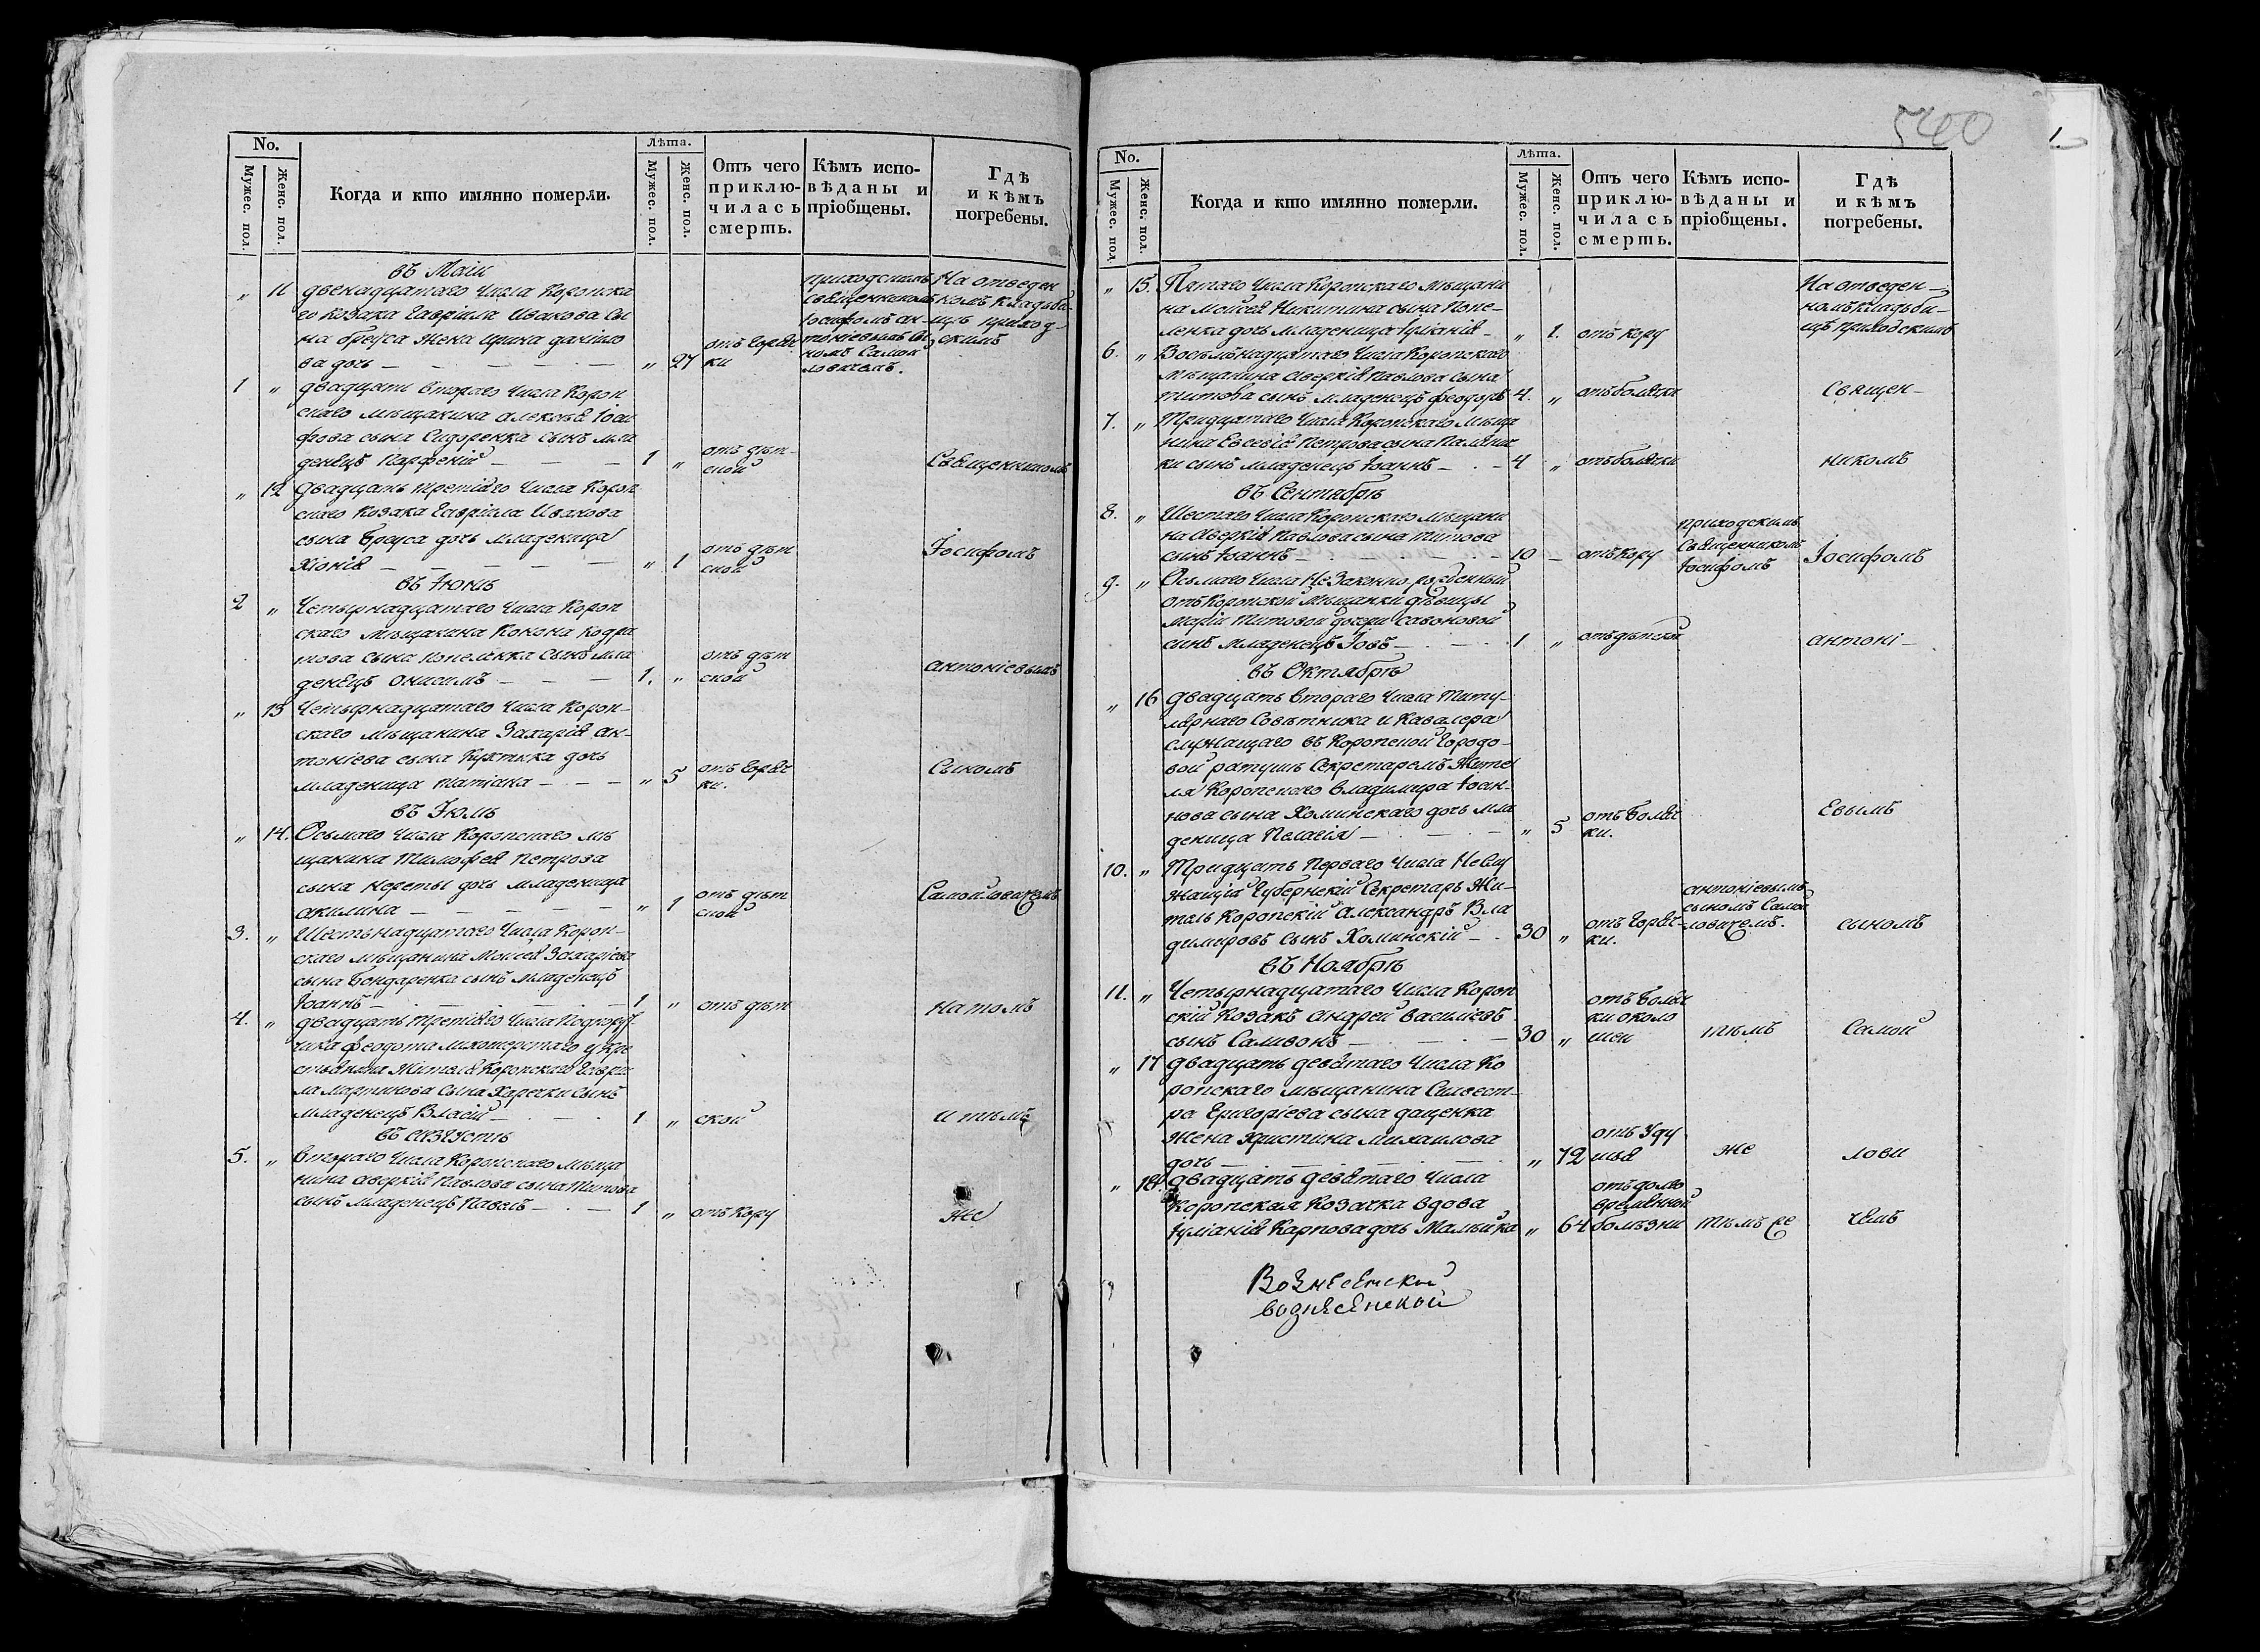 540
No.
Мужес. пол.
Женс. пол.
Когда и кто имянно померли.
Лѣта.
Мужес. пол.
Женс. пол.
Отъ чего
приклю-
чилась
смерть.
Кѣмъ испо-
вѣданы и
пріобщены.
Гдѣ
и кѣмъ
погребены.
въ Маіи
„ 11 двенадцатаго числа Коропска
го Козака Гавріила Ивакова сы
на Бреуса жена Ирина Данило
ва дочь — „ 27
отъ горяч
ки
приходскимъ
священникомъ
Іосифомъ ан-
тоніевымъ сы
номъ Самой
ловичемъ.
На отведен
номъ кладби-
щѣ приход-
скимъ
1 „ двадцать втораго числа Короп
скаго мѣщанина Алексѣя Іоси
фова сына Сидоренка сынъ мла
денецъ Парфеній — 1 „
отъ дѣт-
ской
Священникомъ
„ 12 двадцать третіаго числа Короп
скаго Козака Гавріила Ивакова
сына Бреуса дочь младеница
Хіонія — „ 1
отъ дѣт
ской
Іосифомъ
въ Іюнѣ
2 „ Четырнадцатаго числа Короп
скаго мѣщанина Конона Кодра
това сына Попеленка сынъ мла
денецъ Онисимъ — 1. „
отъ дѣт
ской
антоніевымъ
„ 13 Четырнадцатаго числа Короп-
скаго мѣщанина Захарія Ан-
тоніева сына дочь
младеница Татіана — „ 5
отъ горяч
ки.
Сыномъ
въ Іюлѣ
„ 14. Осьмаго числа Коропскаго мѣ
щанина Тимофея Петрова
сына Нереты дочь младеница
акилина — „ 1
отъ дѣт
ской
Самойловичемъ
3. „ Шестьнадцатаго числа Короп-
скаго мѣщанина Моисея Захаріева
сына Бондаренка сынъ младенецъ
Іоаннъ — 1 „ отъ дѣт
на томъ
4. „ двадцать третіяго числа Подпору
чика Феодота
Жителя Коропскаго Гаврі
ла Мартинова сына Харечки сынъ
младенецъ Власій — 1 „ ской
и тѣмъ
въ Августѣ
5. „ Втораго числа Коропскаго мѣща
нина Аверкія Павлова сына Титова
сынъ младенецъ Павелъ — 1 „ отъ кору
же
No.
Мужес. пол.
Женс. пол.
Когда и кто имянно померли.
Лѣта.
Мужес. пол.
Женс. пол.
Отъ чего
приклю-
чилась
смерть.
Кѣмъ испо-
вѣданы и
пріобщены.
Гдѣ
и кѣмъ
погребены.
„ 15. Пятаго числа Коропскаго мѣщани
на Моисея Никитина сына Попе-
ленка дочь младеница Іуліанія — „ 1. отъ кору
На отведен-
номъ кладби-
щѣ приходскимъ
6. „ Восемьнадцатаго числа Коропскаго
мѣщанина Аверкія Павлова сына
Титова сынъ младенецъ Феодоръ 4. „ отъ болячки
Священ-
7. „ Тридцатаго числа Коропскаго мѣща
нина Евсевія Петрова сына
ки сынъ младенецъ Іоаннъ — 4 „ отъ болячки
никомъ
въ Сентябрѣ
8. „ Шестаго числа Коропскаго мѣщани
на Аверкія Павлова сына Титова
сынъ Іоаннъ — 10 — отъ кору
приходскимъ
Священникомъ
Іосифомъ
Іосифомъ
9. „ Осьмаго числа Незаконно рожденный
отъ Коропской мѣщанки дѣвицы
Маріи Титовой дочери Савоновой
синъ младенецъ Іовъ — 1 „ отъ дѣтской
антоні-
въ Октябрѣ
„ 16 двадцать втораго числа Титу-
лярнаго Совѣтника и Кавалера
служащаго въ Коропской Городо-
вой ратушѣ Секретаремъ Жите
ля Коропскаго Владимира Іоан-
нова сына Хоминскаго дочь мла
деница Пелагія — „ 5
отъ Боляч
ки.
Евымъ
10. „ Тридцать перваго числа Неслу
жащій Губернскій Секретаръ Жи-
тель Коропскій Александръ Вла
димировъ сынъ Хоминскій — 30 „
отъ горяч-
ки.
антоніевымъ
сыномъ Самой
ловичемъ.
сыномъ
въ Ноябрѣ
11. „ Четырнадцатаго числа Короп
скій Козакъ Андрей Васильевъ
сынъ Саливонъ — 30 „
отъ Боляч
ки около
шеи
тѣмъ
Самой
„ 17 двадцать девятаго числа Ко
ропскаго мѣщанина Силвест-
ра Григоріева сына Даценка
жена Христина Михаилова
дочь — „ 72
отъ Уду
шья
же
лови
„ 18. двадцать девятаго числа
Коропская Козачка вдова
Іуліанія Карпова дочь Малышка „ 64
отъ долго
временной
болѣзни
тѣмъ же
чемъ
Вознесенской
вознесенской